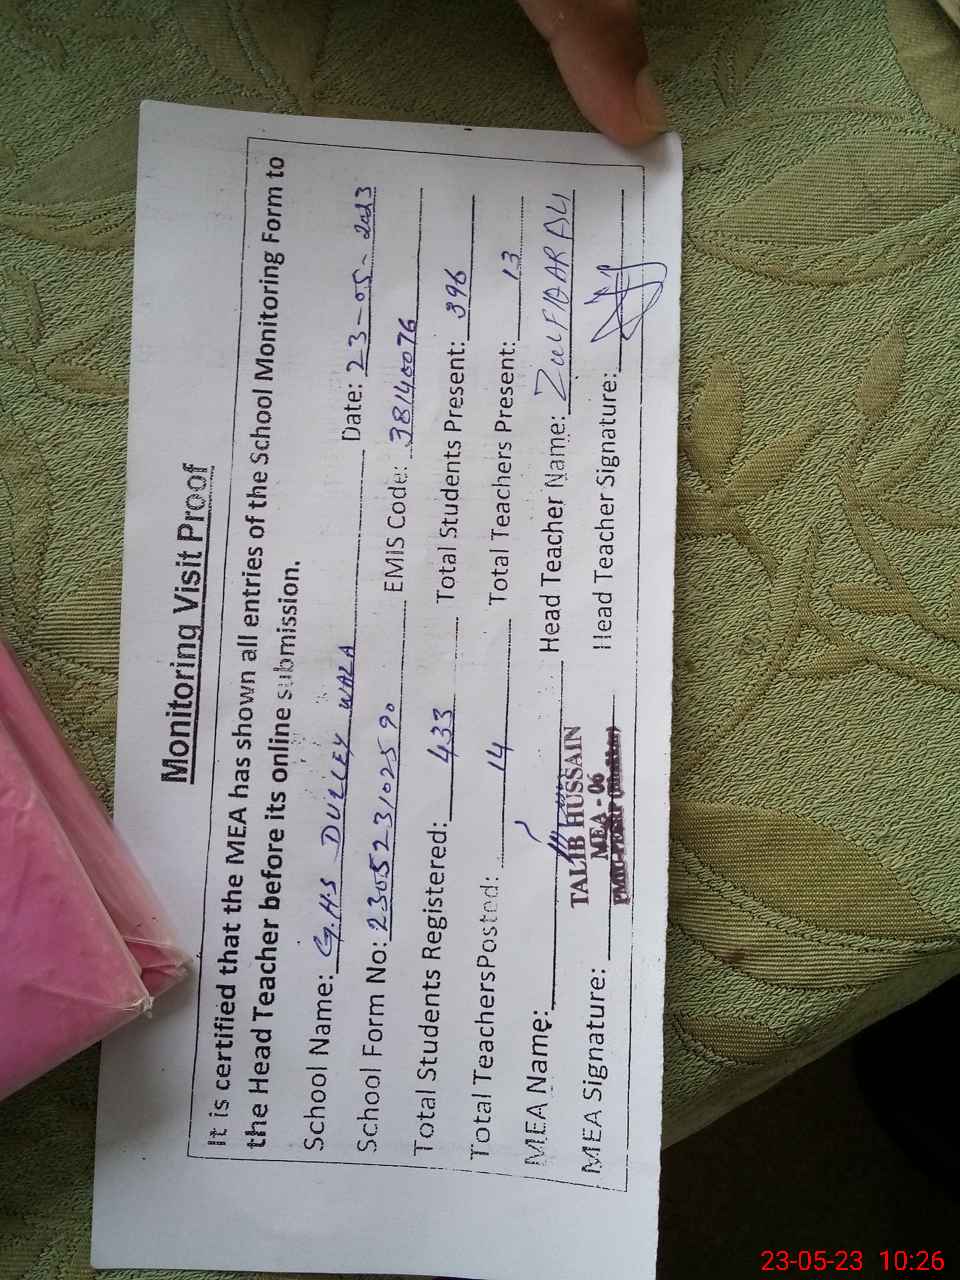 Monitoring Visit Proof
It is certified that the MEA has shown all entries of the School Monitoring Form to
the Head Teacher before its online submission.
School Name: G.H.S DULLEY WALA Date: 23-05-2023
School Form No: 230523102590 EMIS Code: 38140076
Total Students Registered: 433 Total Students Present: 396
Total TeachersPosted: 14 Total Teachers Present: 13
MEA Name: Head Teacher Name: ZulFIQAR ALI
TALIB HUSSAIN
MEA - 06
MEA Signature: Head Teacher Signature:
23-05-23 10:26